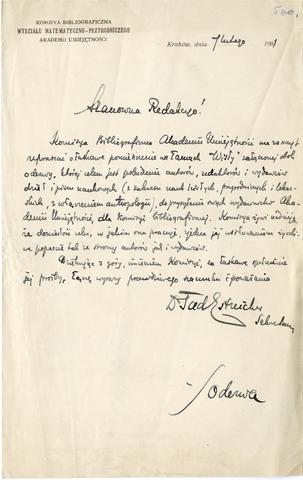 500,
KOMISYA BIBLIOGRAFICZNA
WYDZIAŁU MATEMATYCZNO-PRZYRODNICZEGO
AKADEMII UMIEJĘTNOŚCI
Kraków, dnia 7 lutego 1901
Szanowna Redakcyo!
Komisya Bibliograficzna Akademii Umiejętności ma zaszczyt
upraszać o łaskawe pomieszczenie na łamach "Wisły" załączonej
odezwy, której celem jest pobudzenie autorów, redaktorów i wydawców
dzieł i pism naukowych (z zakresu nauk ścisłych, przyrodniczych i lekar-
skich, z włączeniem antropologii), do przysyłania swych wydawnictw Aka-
demii Umiejętności, dla Komisyi bibliograficznej. Komisya żywi nadzieję,
że doniosłość celu, w jakim ona pracuje, zjedna jej usiłowaniom życzli-
we poparcie tak ze strony autorów jak i wydawców.
Dziękując z góry, imieniem Komisyi, za łaskawe spełnienie
jej prośby, łączę wyrazy prawdziwego szacunku i poważania
Dr Tad Estreicher
Sekretarz
Odezwa